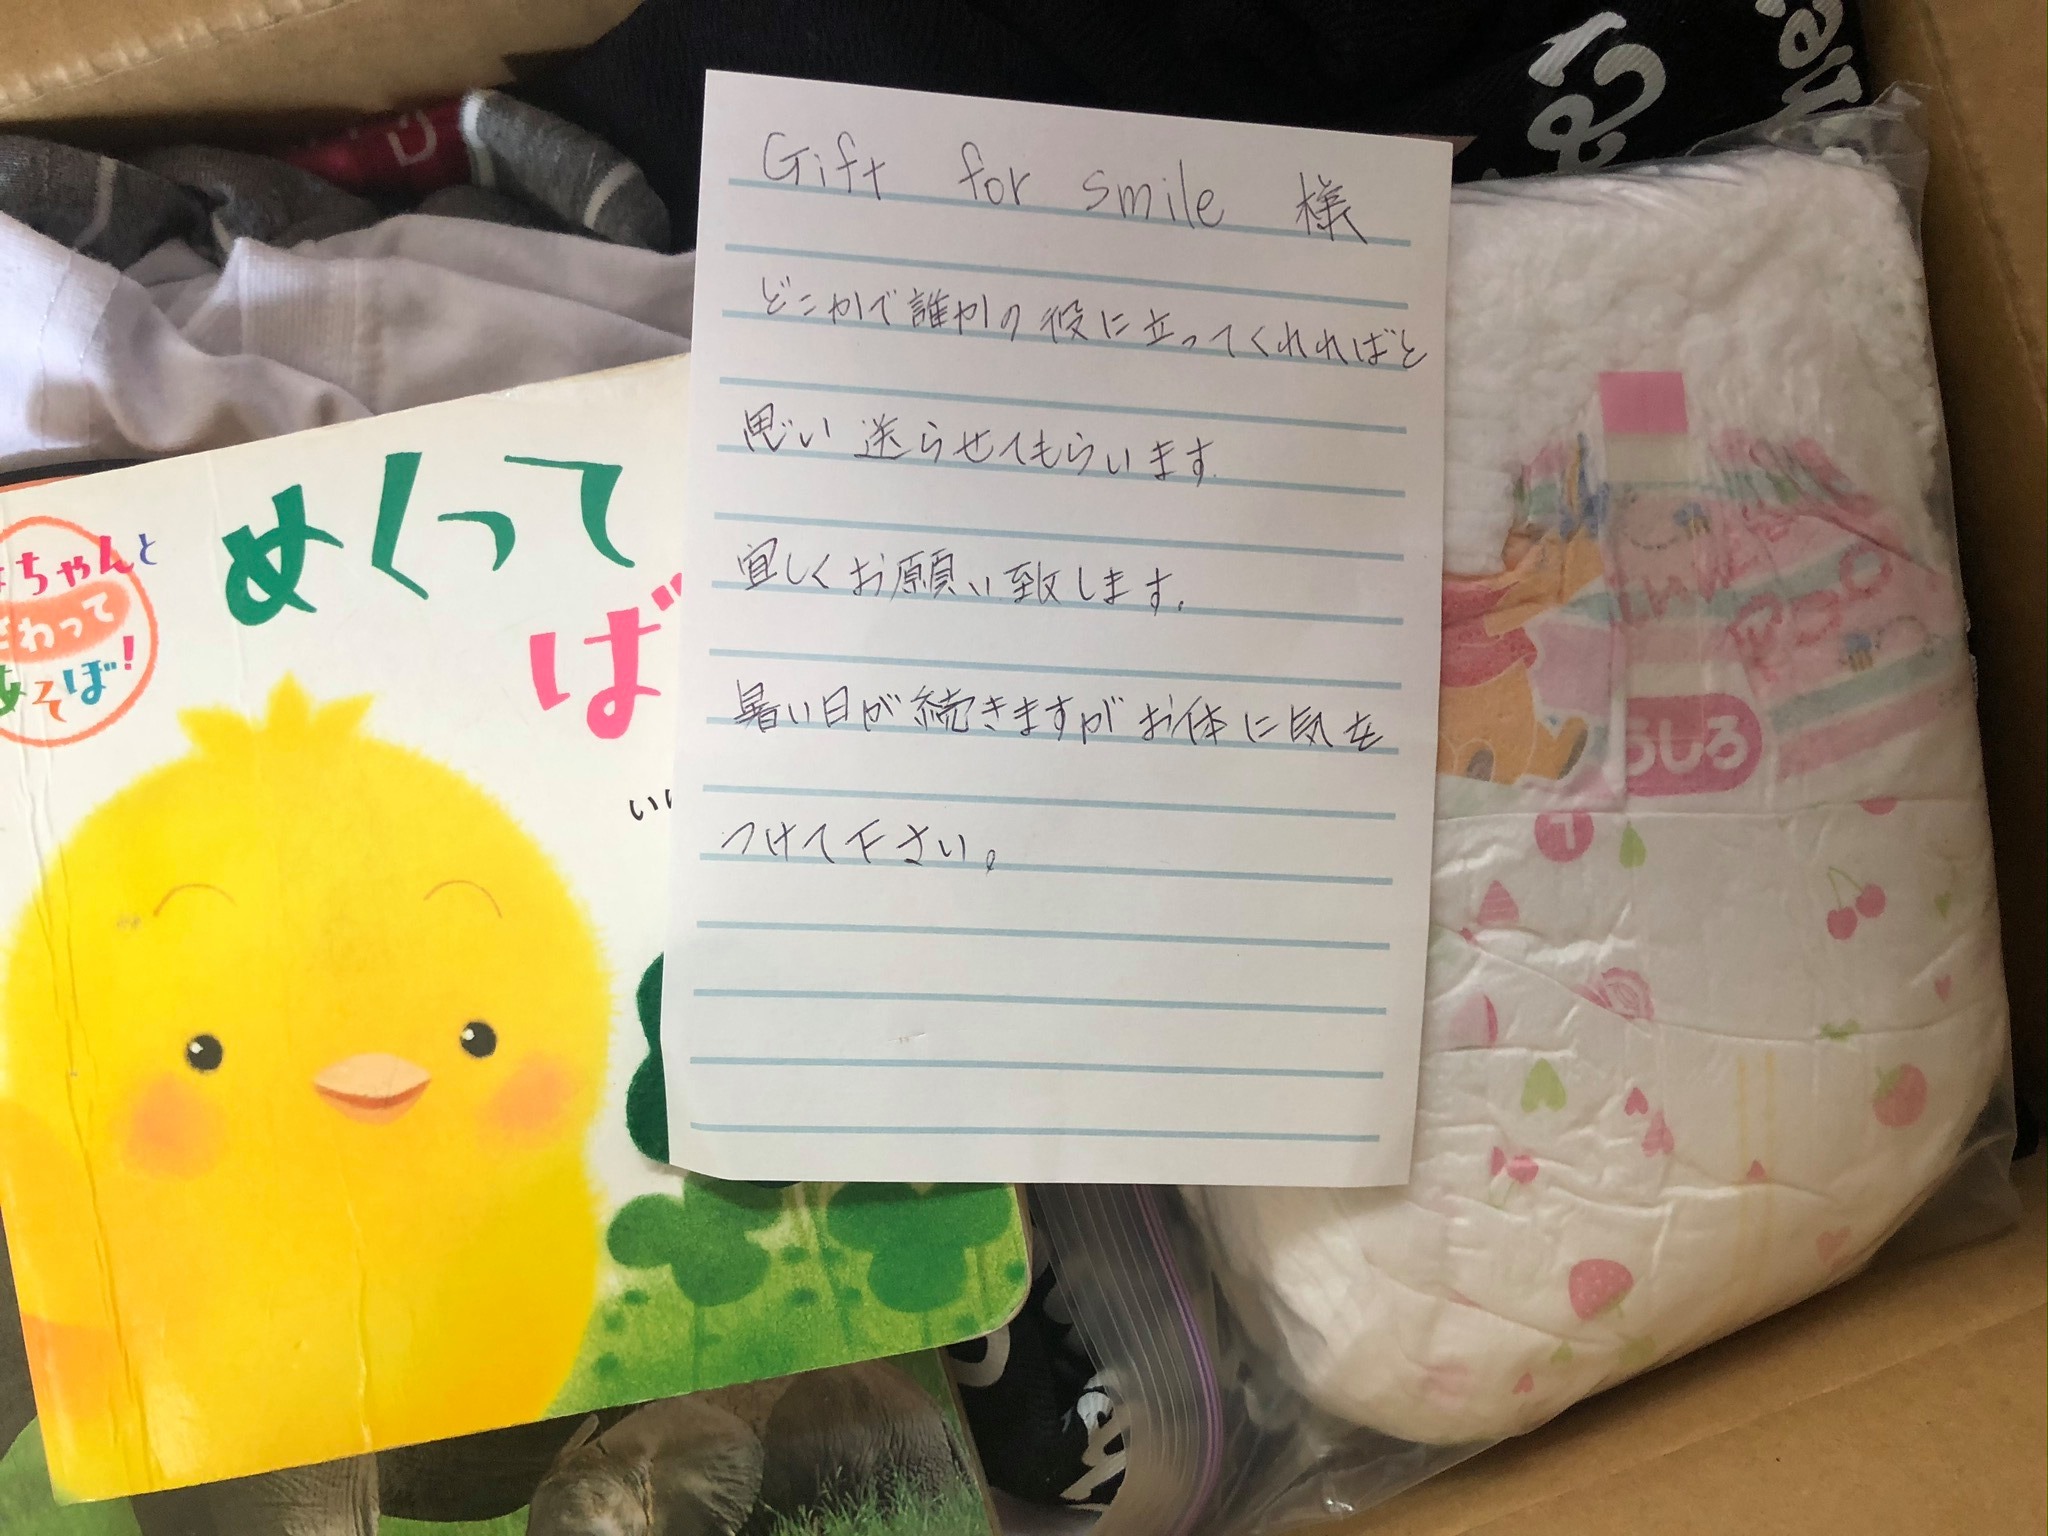 Gift for smile 様
どこかで誰かの役に立ってくれればと
思い送らせてもらいます.
宜しくお願い致します.
暑い日が続きますがお体に気を
つけて下さい。
めくって
ば
ちゃんと
わって
あそぼ!
うしろ